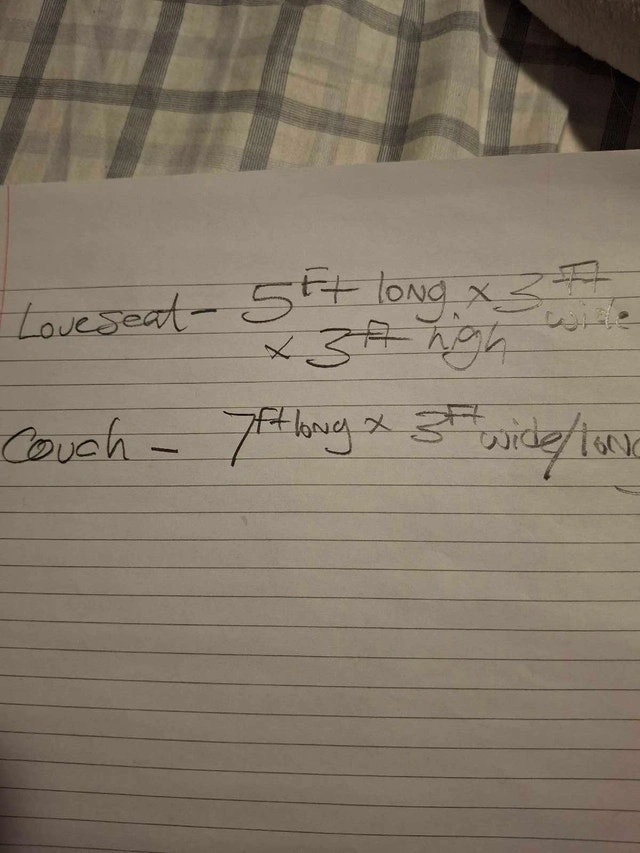 Loveseat - 5 Ft long x 3 Ft wide
x 3 Ft high
Couch - 7 ft long x 3 Ft wide/long